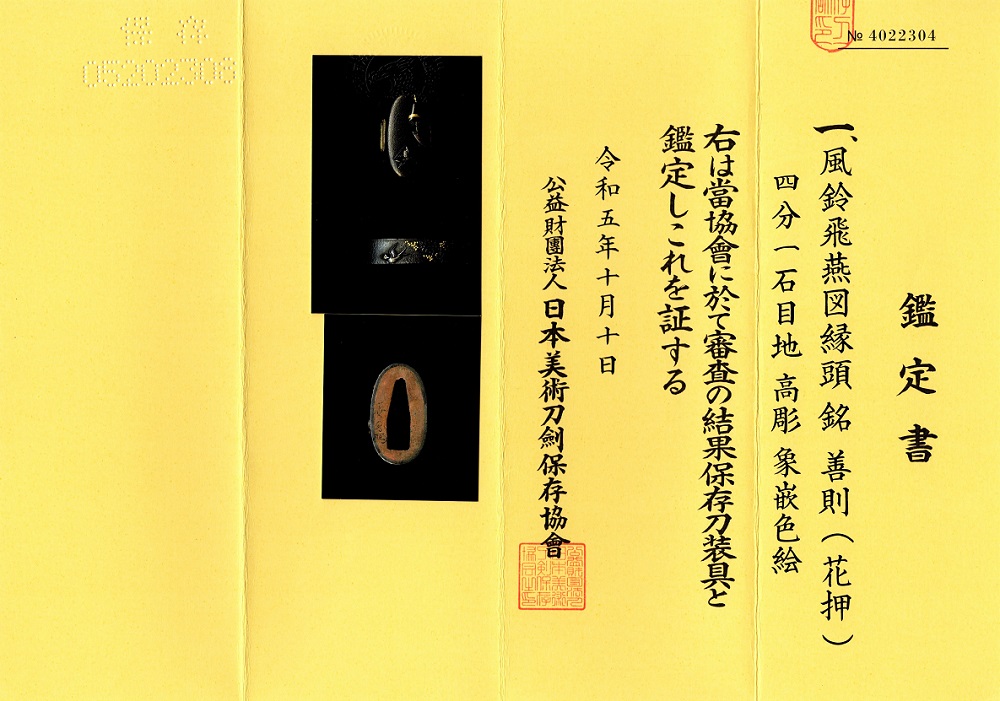 № 4022304
鑑定書
一、風鈴飛燕図縁頭 銘 善則(花押)
四分一石目地 高彫 象嵌色絵
右は當協會に於て審査の結果保存刀装具と
鑑定しこれを証する
令和五年十月十日
公益財團法人 日本美術刀劍保存協會
保存
05202306